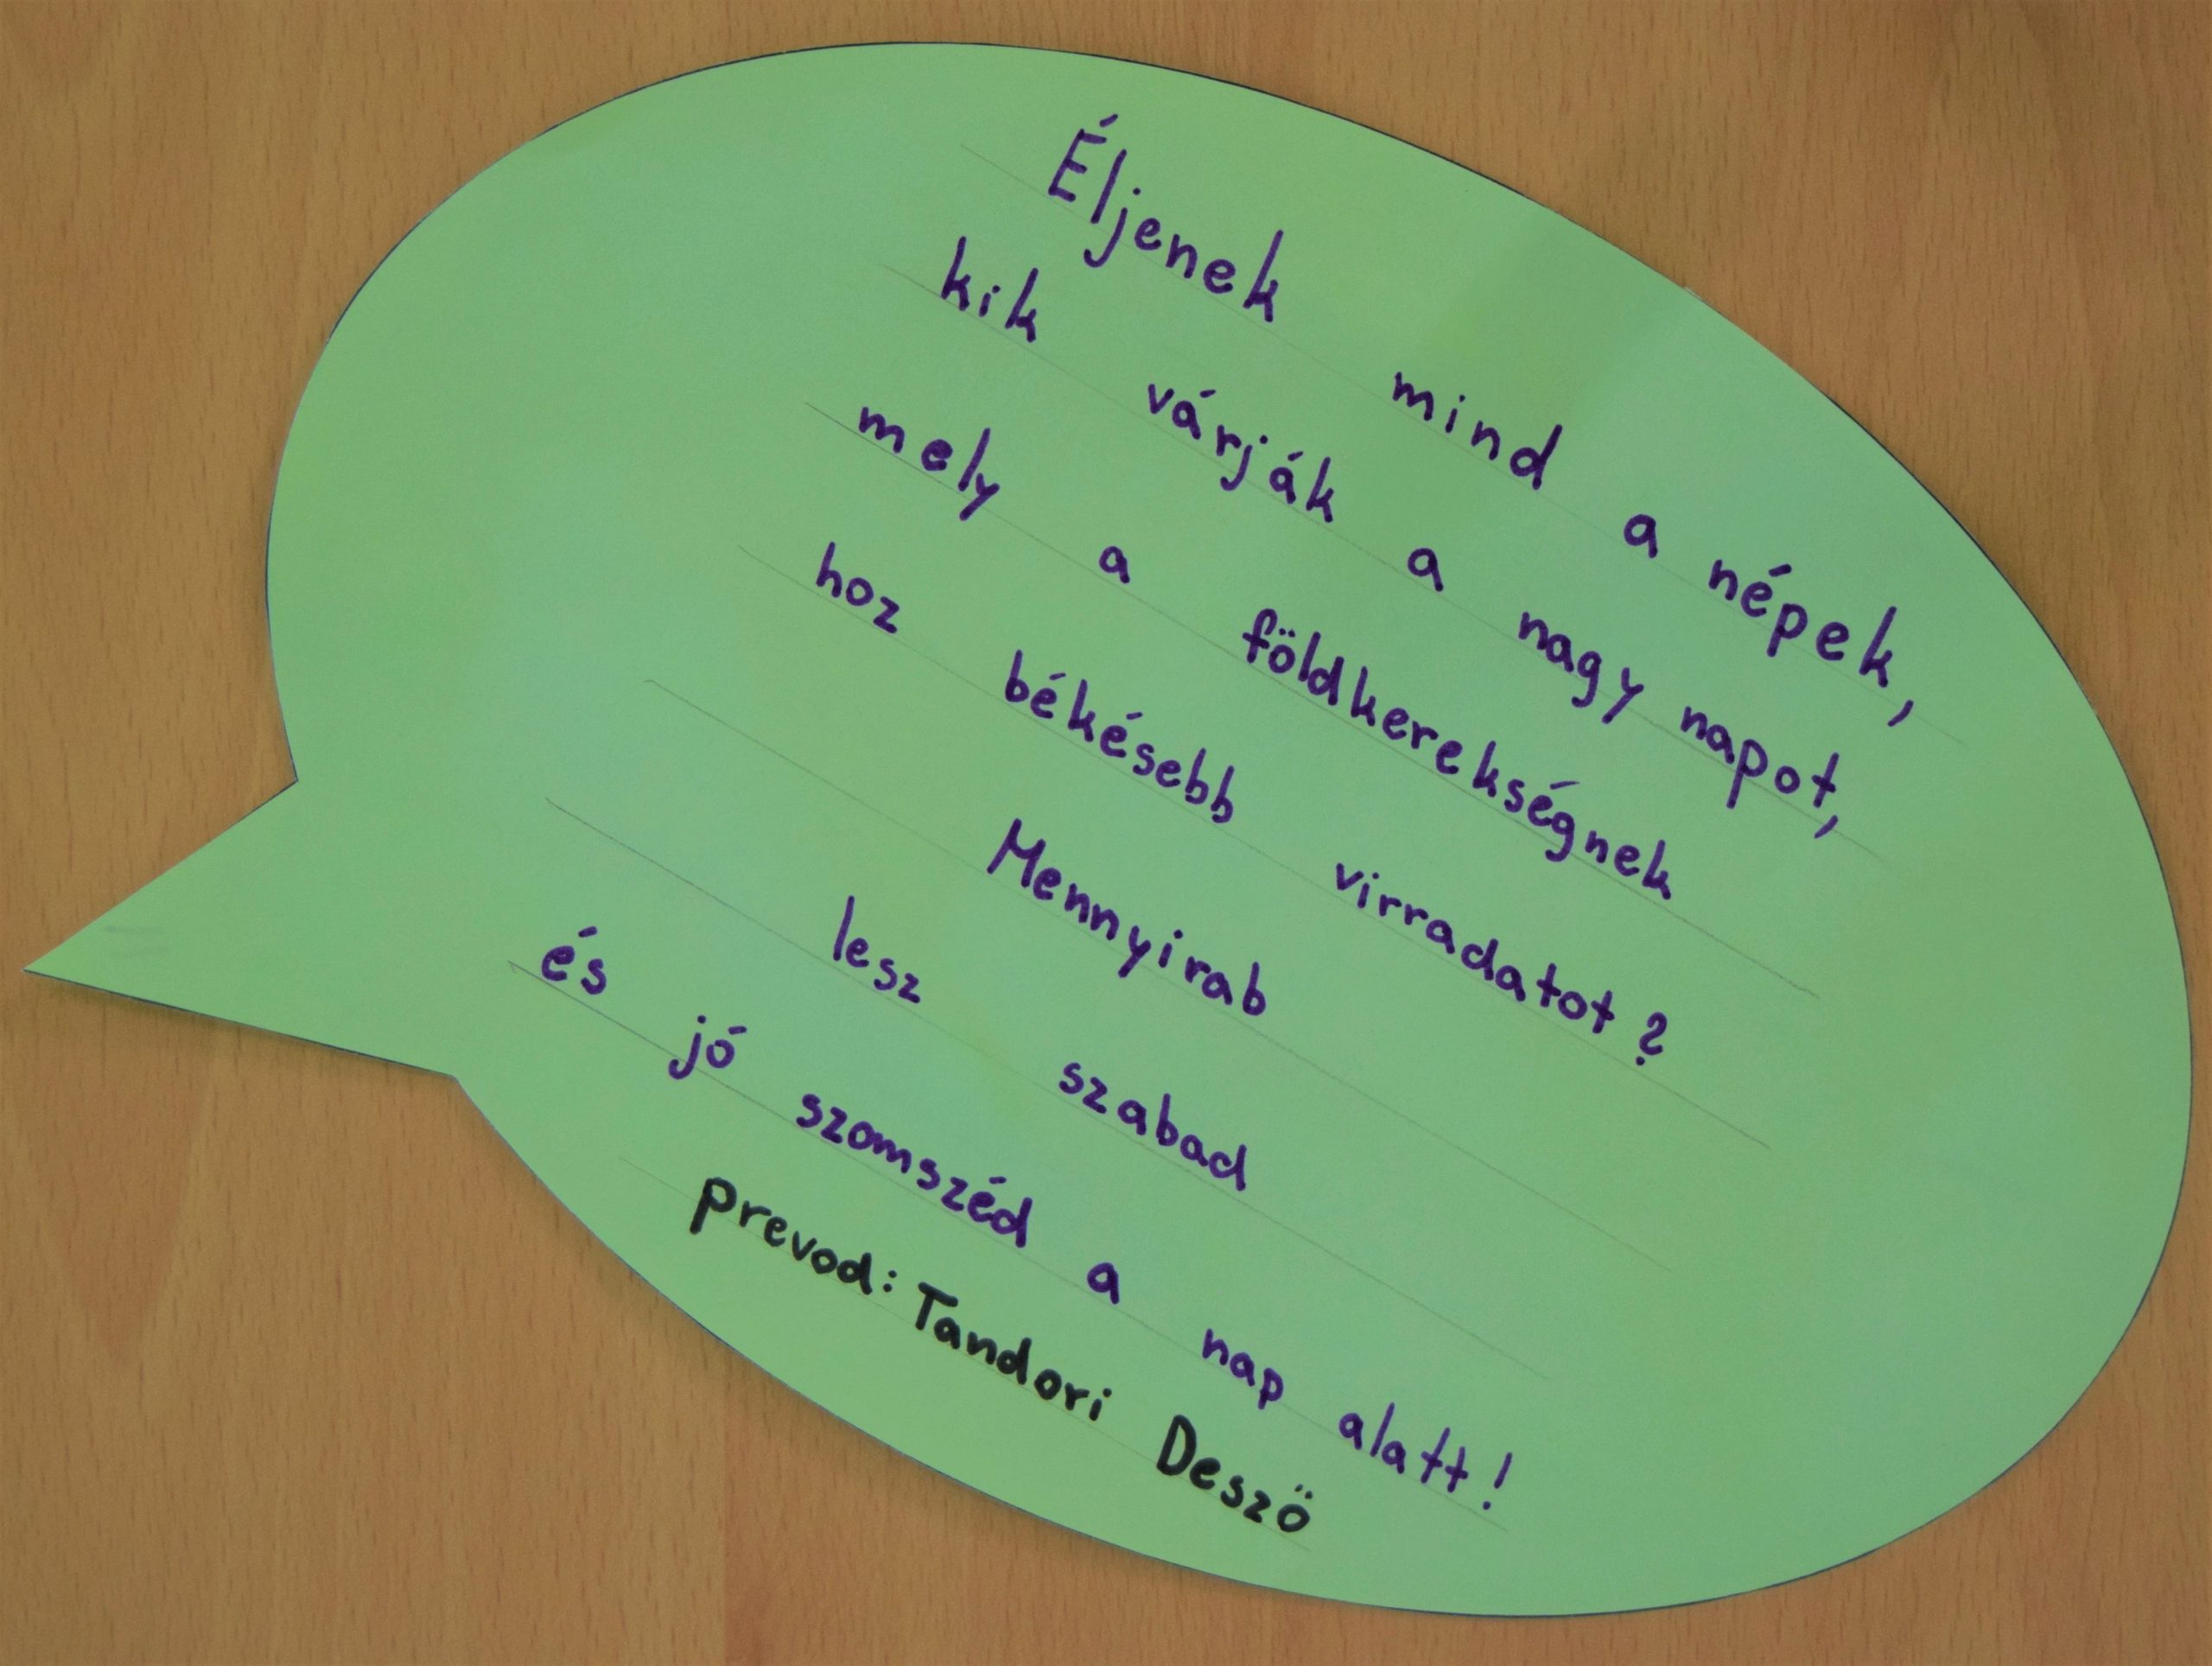 Éljenek mind a népek,
kik várják a nagy napot,
mely a földkerekségnek
hoz békésebb virradatot?
Mennyirab
lesz szabad
és jó szomszéd a nap alatt!
prevod: Tandori Desző